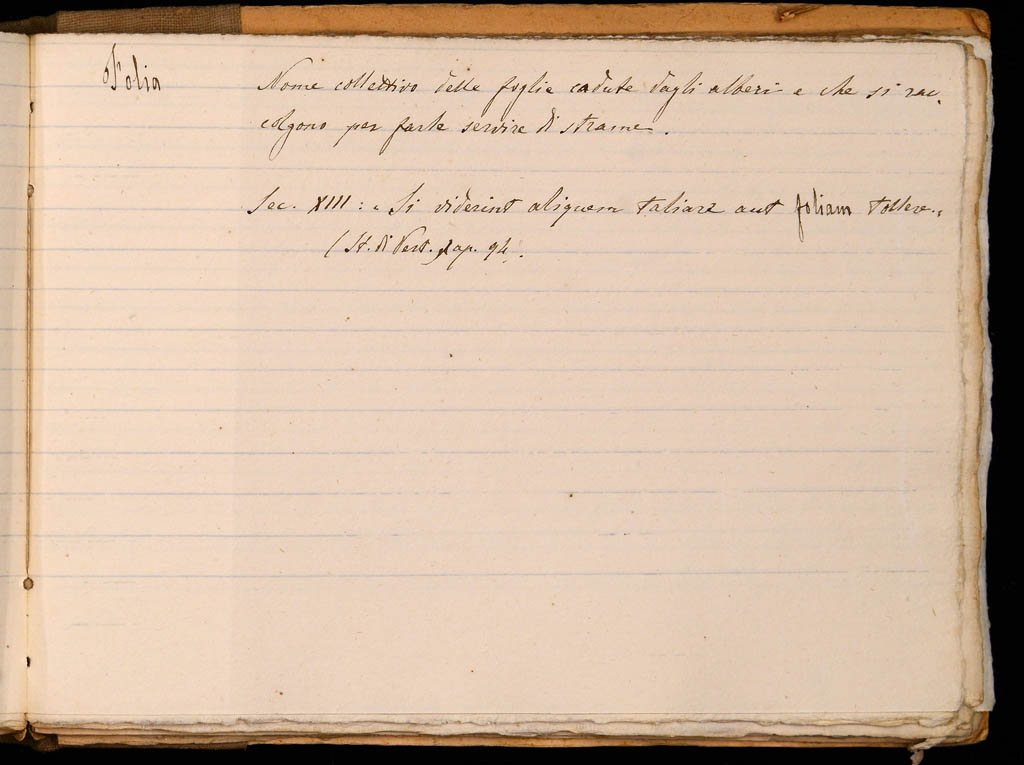 Folia
Nome collettivo delle foglie cadute dagli alberi e che si rac-
colgono per farle servire di strame.
Sec. XIII: « Si viderint aliquem taliare aut foliam tollere »
(St. di Vert., cap. 94).